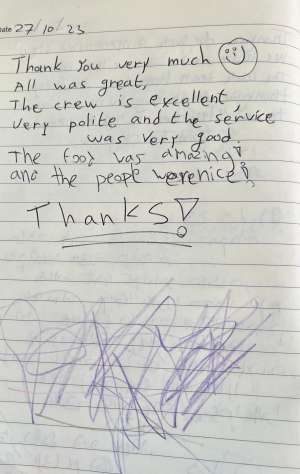 Date 27/10/23
Thank You very much
All was great,
The crew is excellent,
very polite and the service
was very good.
The food was amazing!
and the people were nice!
Thanks!